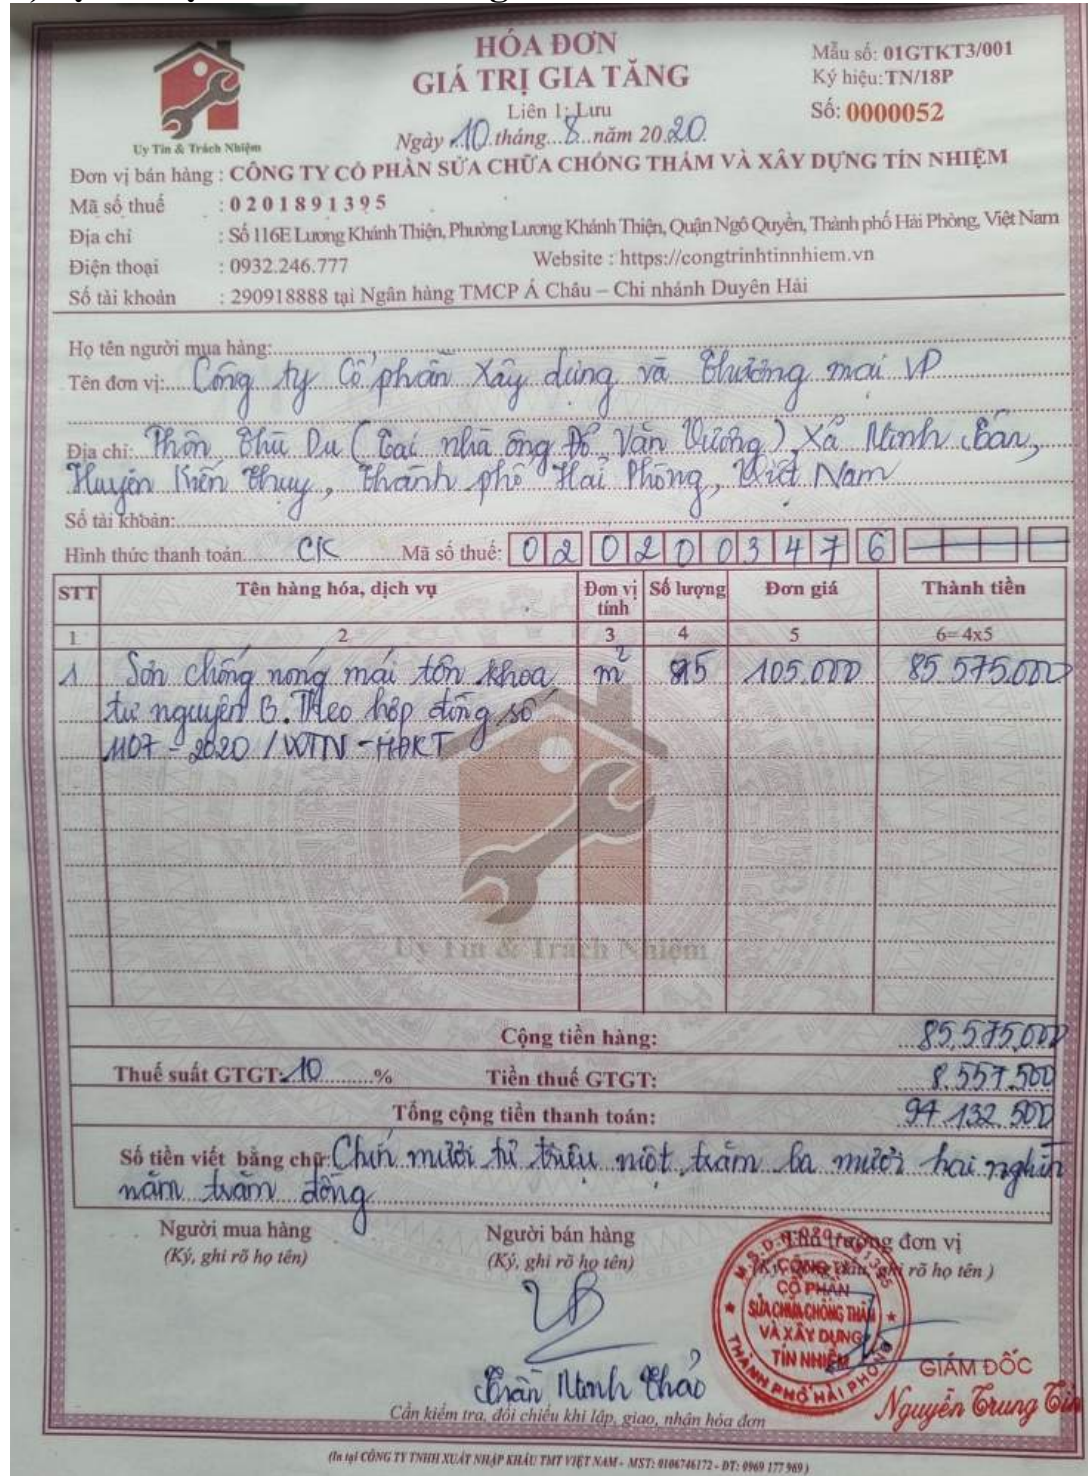 HÓA ĐƠN
GIÁ TRỊ GIA TĂNG
Liên 1: Lưu
Ngày 10 tháng 8 năm 2020
Mẫu số: 01GTKT3/001
Ký hiệu: TN/18P
Số: 0000052
Uy Tín & Trách Nhiệm
Đơn vị bán hàng : CÔNG TY CỔ PHẦN SỬA CHỮA CHỐNG THẤM VÀ XÂY DỰNG TÍN NHIỆM
Mã số thuế : 0201891395
Địa chỉ : Số 116E Lương Khánh Thiện, Phường Lương Khánh Thiện, Quận Ngô Quyền, Thành phố Hải Phòng, Việt Nam
Điện thoại : 0932.246.777 Website : https://congtrinhtinnhiem.vn
Số tài khoản : 290918888 tại Ngân hàng TMCP Á Châu – Chi nhánh Duyên Hải
Họ tên người mua hàng:
Tên đơn vị: Công ty Cổ phần Xây dựng và Thương mại VP
Địa chỉ: Thôn Chù Du (Tại nhà ông Đỗ Văn Vượng), Xã Minh Tân,
Huyện Kiến Thụy, Thành phố Hải Phòng, Việt Nam
Số tài khoản:
Hình thức thanh toán CK Mã số thuế: 0202003476
STT Tên hàng hóa, dịch vụ Đơn vị tính Số lượng Đơn giá Thành tiền
1 2 3 4 5 6= 4x5
1 Sơn chống nóng mái tôn khoa m² 815 105.000 85.575.000
tự nguyện B. Theo hợp đồng số
1107 - 2020 / - HĐKT
Uy Tín & Trách Nhiệm
Cộng tiền hàng: 85.575.000
Thuế suất GTGT: 10 % Tiền thuế GTGT: 8.557.500
Tổng cộng tiền thanh toán: 94.132.500
Số tiền viết bằng chữ: Chín mươi tư triệu một trăm ba mươi hai nghìn
năm trăm đồng
Người mua hàng Người bán hàng Thủ trưởng đơn vị
(Ký, ghi rõ họ tên) (Ký, ghi rõ họ tên) (Ký, đóng dấu, ghi rõ họ tên )
M.S.D.N:0201891395
CÔNG TY
CỔ PHẦN
SỬA CHỮA CHỐNG THẤM
VÀ XÂY DỰNG
TÍN NHIỆM
THÀNH PHỐ HẢI PHÒNG
GIÁM ĐỐC
Trần Minh Thảo
Nguyễn Trung Tín
Cần kiểm tra, đối chiếu khi lập, giao, nhận hóa đơn
(In tại CÔNG TY TNHH XUẤT NHẬP KHẨU TMT VIỆT NAM - MST: 0106746172 - ĐT: 0969 177 969 )